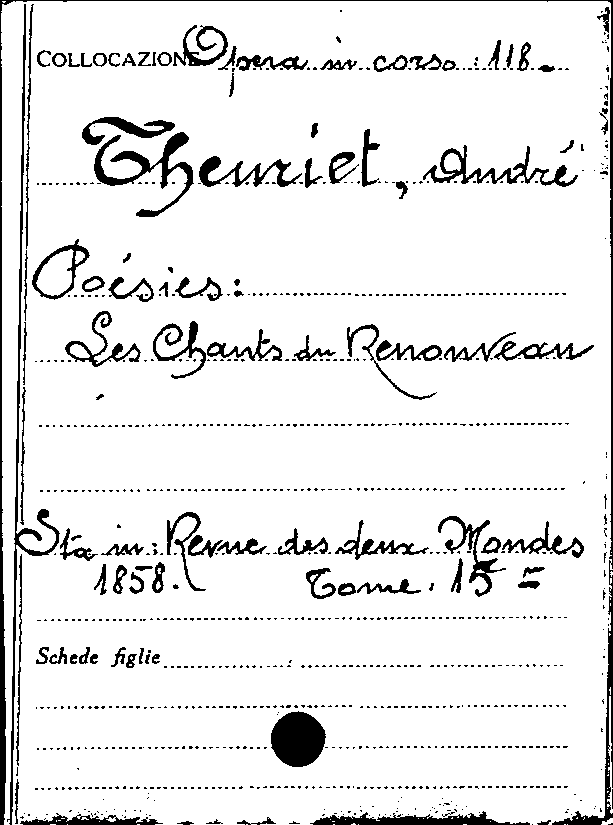 COLLOCAZIONE Opera in corso : 118 -
Theuriet, André
Poésies:
Les Chants du Renouveau
Sta in: Revue des deux Mondes
1858. Tome. 15 =
Schede figlie